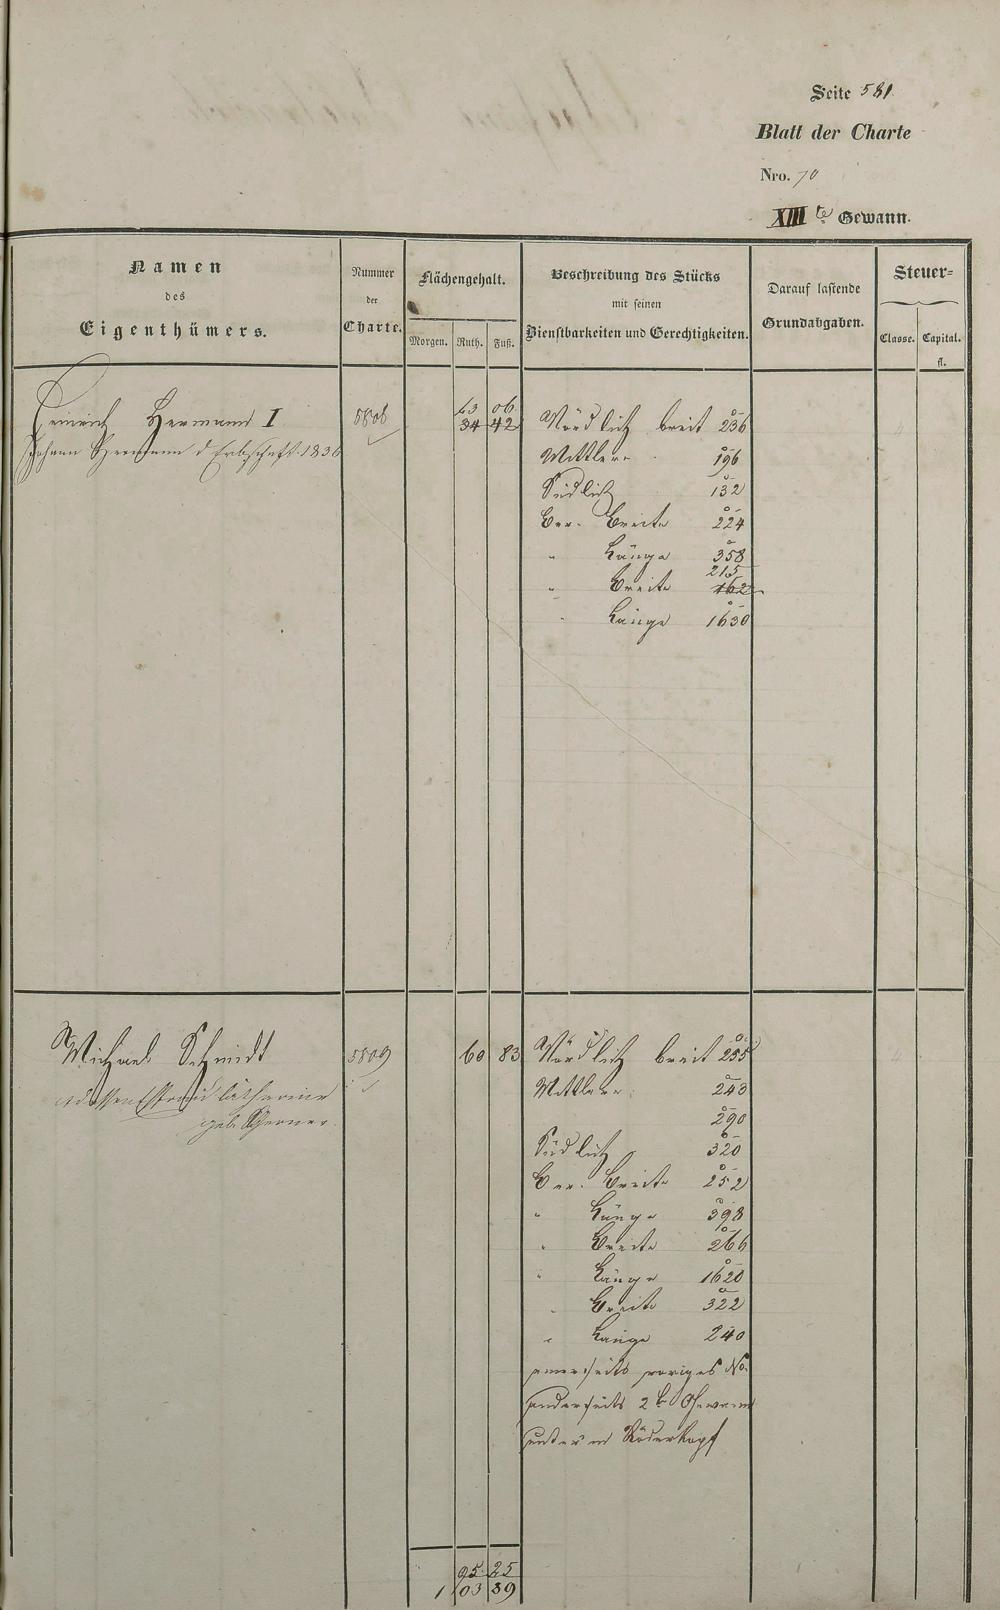 Seite 581
Blatt der Charte
Nro. 70
XIII te Gewann.
Namen
des
Eigenthümers.
Nummer
der
Charte.
Flächengehalt.
Morgen. Ruth. Fuß.
Beschreibung des Stücks
mit seinen
Dienstbarkeiten und Gerechtigkeiten.
Darauf lastende
Grundabgaben.
Steuer-
Classe. Capital.
fl.
Heinrich Hermann I 5808 34 42 Nördlich breit 236
06
Johann Hermann d Erbschaft 1836
Mittler 196
Südlich 132
Ver. Breite 224
" Länge 358
215
" Breite 162
" Länge 1630
Michael Schmidt 5809 60 83 Nördlich breit 255
dessen Ehefrau Catharine
geb.
Mittler 243
290
Südlich 320
Ver. Breite 252
" Länge 398
" Breite 266
" Länge 1620
" Breite 322
" Länge 240
einerseits voriges No.
anderseits 2te Gewann
unterm Röderkopf
95 25
1 03 39